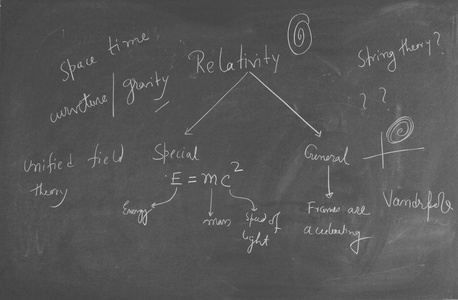 Space time
curvature | gravity
Relativity
String theory?
? ?
unified field
theory
Special
E = mc²
Energy
mass
Speed of
light
General
Frames are
accelerating